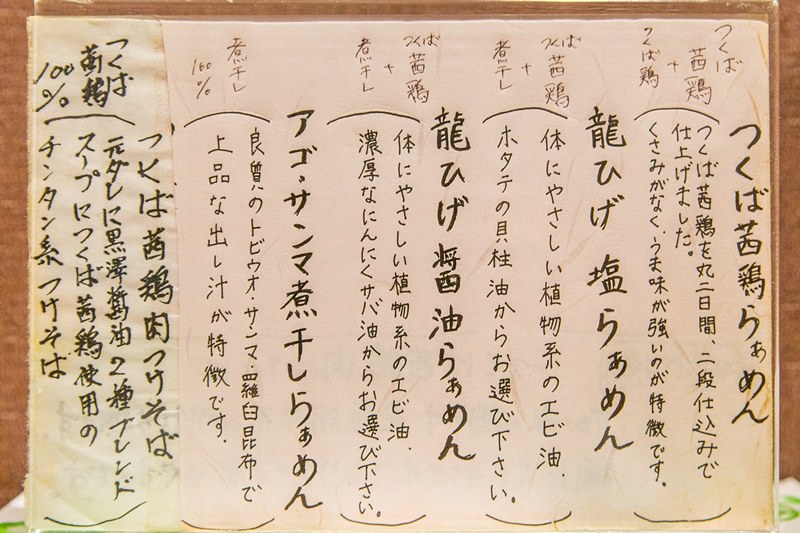 つくば茜鶏らぁめん
つくば
茜鶏
+
つくば鶏
つくば茜鶏を丸二日間、二段仕込みで
仕上げました。
くさみがなく、うま味が強いのが特徴です。
龍ひげ 塩らぁめん
つくば
茜鶏
+
煮干し
体にやさしい植物系のエビ油、
ホタテの貝柱油からお選び下さい。
龍ひげ醤油らぁめん
つくば
茜鶏
+
煮干し
体にやさしい植物系のエビ油、
濃厚なにんにくサバ油からお選び下さい。
アゴ・サンマ煮干しらぁめん
煮干し
100%
良質のトビウオ・サンマ・羅臼昆布で
上品な出し汁が特徴です。
つくば茜鶏肉つけそば
つくば
茜鶏
100%
元ダレに黒澤醤油2種ブレンド
スープにつくば茜鶏使用の
チンタン系つけそば